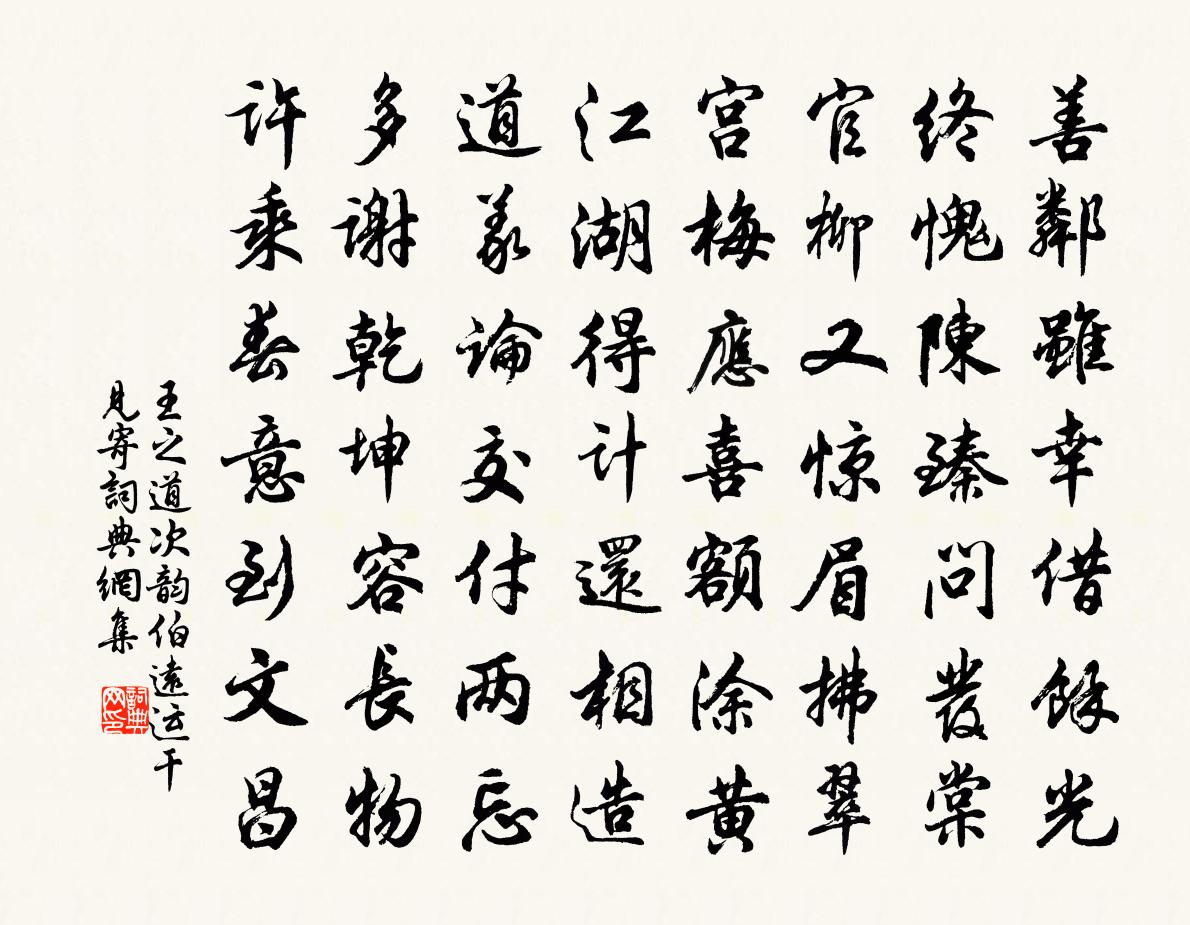 善鄰雖幸借餘光
終愧陳臻問發棠
官柳又惊眉拂翠
宫梅應喜額涂黄
江湖得计還相造
道義論交付两忘
多謝乾坤容長物
许乘春意到文昌
王之道次韵伯遠运干
見寄詞典網集
詞典网印